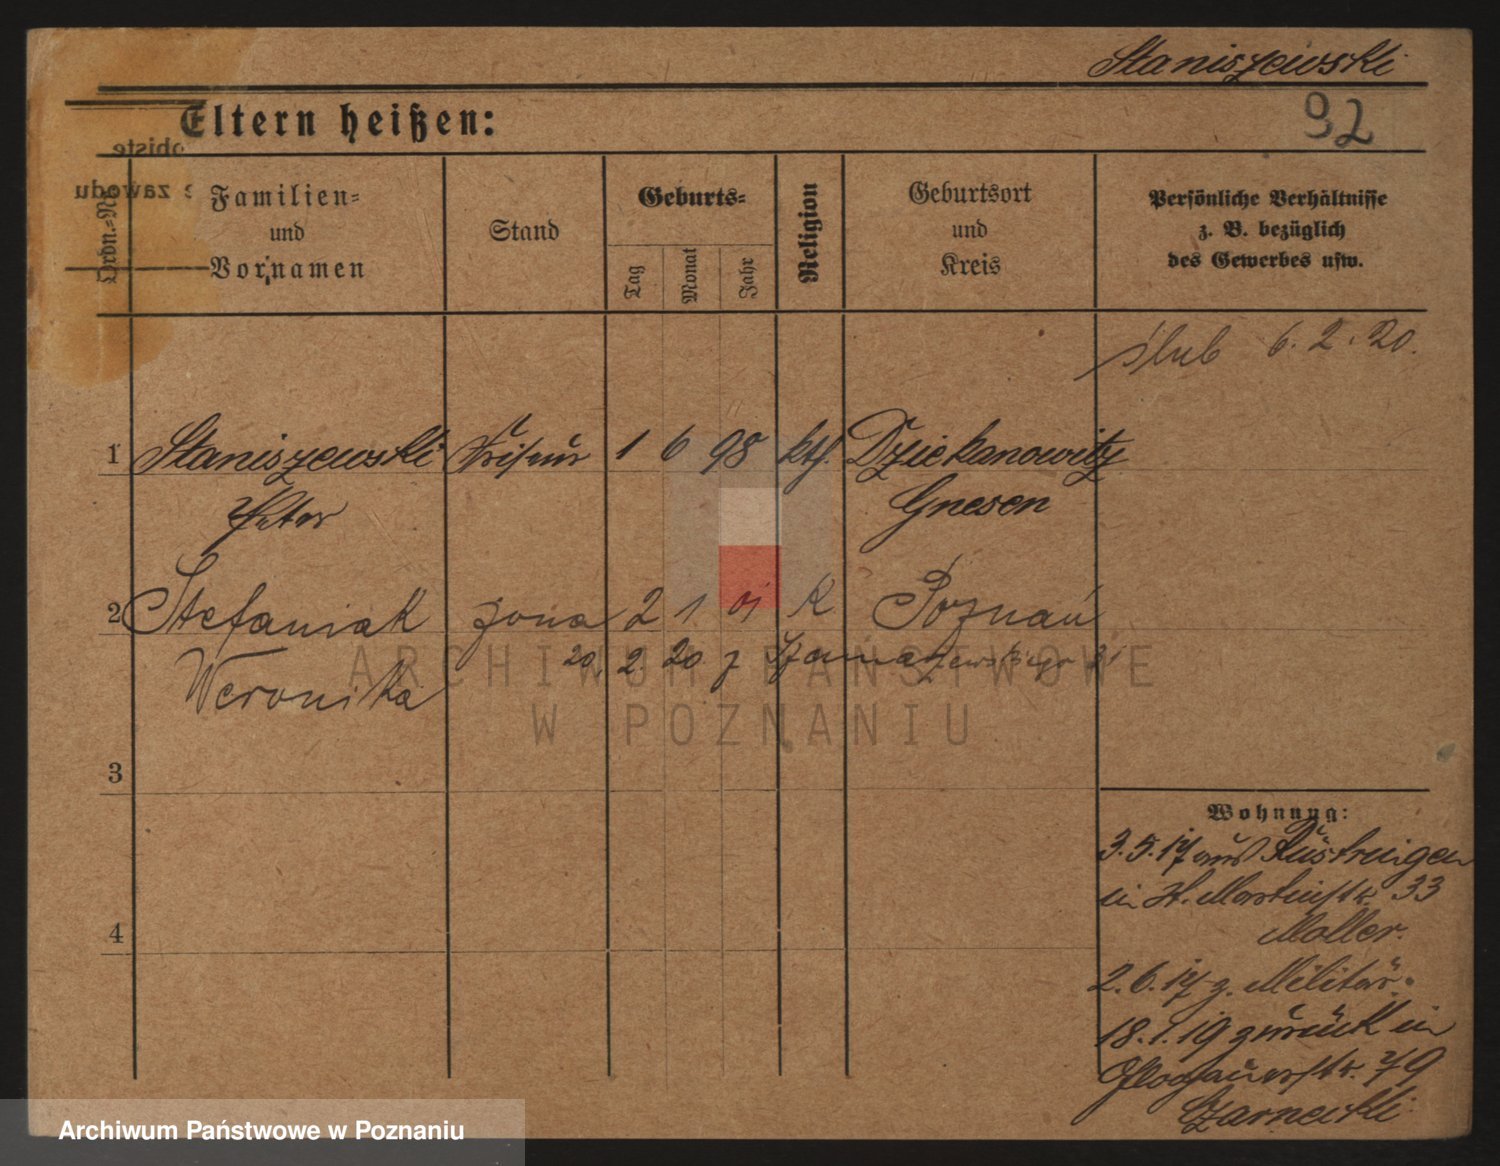 Staniszewski
92
Eltern heißen:
Ordn.-Nr.
Familien-
und
Vornamen
Stand
Geburts-
Tag
Monat
Jahr
Religion
Geburtsort
und
Kreis
Persönliche Verhältnisse
z. B. bezüglich
des Gewerbes usw.
ślub 6. 2. 20.
1 Staniszewski Friseur 1 6 98 kth. Dziekanowitz
Peter Gnesen
2 Stefaniak żona 2 1 01 K Poznań
20. 2. 20 z
Weronika
3
4
Wohnung:
3.5.17 aus Rüstringen
in St. Martinstr. 33
Moller.
2.6.17 z. Militär.
18.1.19 zurück in
Glogauerstr. 79
Czarnecki
obiste
zawodu
ARCHIWUM PAŃSTWOWE
W POZNANIU
Archiwum Państwowe w Poznaniu